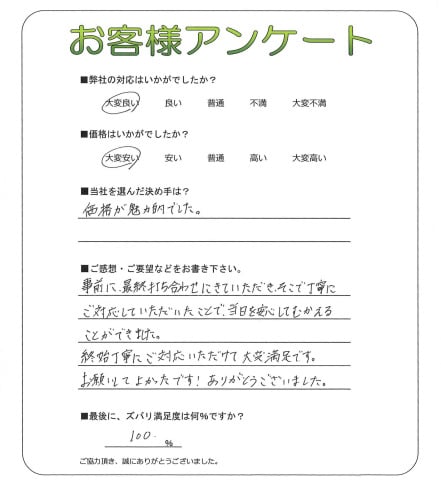 お客様アンケート
■弊社の対応はいかがでしたか？
大変良い 良い 普通 不満 大変不満
■価格はいかがでしたか？
大変安い 安い 普通 高い 大変高い
■当社を選んだ決め手は？
価格が魅力的でした。
■ご感想・ご要望などをお書き下さい。
事前に、最終打ち合わせにきていただき、そこで丁寧に
ご対応していただいたことで、当日を安心してむかえる
ことができました。
終始丁寧にご対応いただけて大変満足です。
お願いしてよかったです！ありがとうございました。
■最後に、ズバリ満足度は何％ですか？
100.
％
ご協力頂き、誠にありがとうございました。